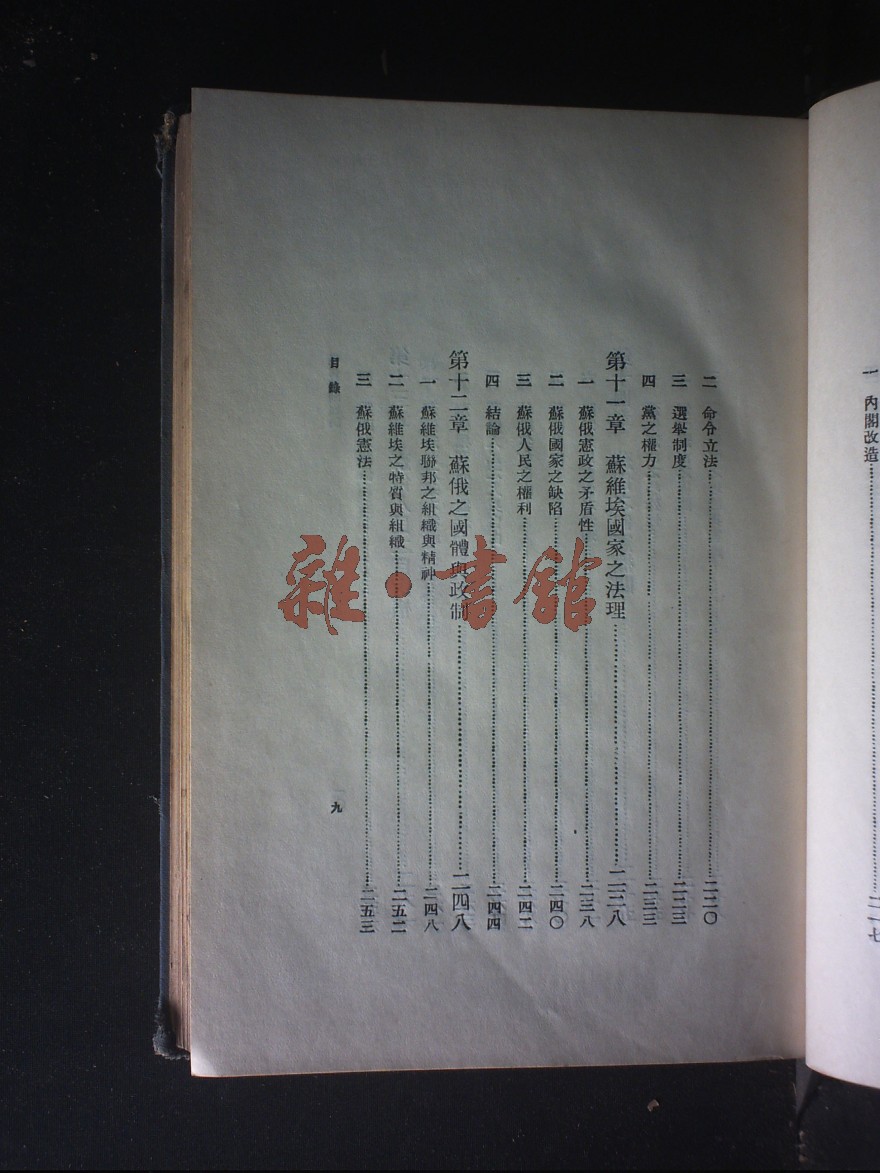 一 內閣改造……二一七
二 命令立法……二二〇
三 選舉制度……二二三
四 黨之權力……二三三
第十一章 蘇維埃國家之法理……二三八
一 蘇俄憲政之矛盾性……二三八
二 蘇俄國家之缺陷……二四〇
三 蘇俄人民之權利……二四二
四 結論……二四四
第十二章 蘇俄之國體與政制……二四八
一 蘇維埃聯邦之組織與精神……二四八
二 蘇維埃之特質與組織……二五二
三 蘇俄憲法……二五三
目錄
九
雜·書館